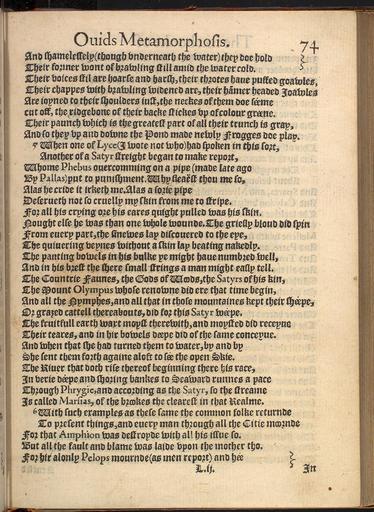 Ouids Metamorphosis. 74
And shamelessely (though vnderneath the water) they doe hold
Their former wont of brawling still amid the water cold.
Their voices stil are hoarse and harsh, their throtes haue puffed goawles,
Their chappes with brawling widened are, their hāmer headed Joawles
Are ioyned to their shoulders iust, the neckes of them doe séeme
cut off, the ridgebone of their backe stickes vp of colour gréene.
Their paunch which is the greatest part of all their trunch is gray,
And so they vp and downe the Pond made newly Frogges doe play.
5 When one of Lyce (I wote not who) had spoken in this sort,
Another of a Satyr streight began to make report,
Whome Phebus ouercomming on a pipe (made late ago
By Pallas) put to punishment. Why fleaest thou me so,
Alas he cride it irketh me. Alas a sorie pipe
Deserueth not so cruelly my skin from me to stripe.
For all his crying ore his eares quight pulled was his skin.
Nought else he was than one whole wounde. The griesly bloud did spin
From euery part, the sinewes lay discouered to the eye,
The quiuering veynes without a skin lay beating nakedly.
The panting bowels in his bulke ye might haue numbred well,
And in his brest the shere small strings a man might easly tell.
The Countrie Faunes, the Gods of Wods, the Satyrs of his kin,
The Mount Olympus whose renowne did ere that time begin,
And all the Nymphes, and all that in those mountaines kept their shéepe,
Or grazed cattell thereabouts, did for this Satyr wéepe.
The fruitfull earth waxt moyst therewith, and moysted did receyue
Their teares, and in his bowels déepe did of the same conceyue.
And when that she had turned them to water, by and by
She sent them forth againe aloft to sée the open Skie.
The Riuer that doth rise thereof beginning there his race,
In verie déepe and shoring bankes to Seaward runnes a pace
Through Phrygie, and according as the Satyr, so the streame
Is called Marsias, of the brookes the clearest in that Realme.
6 With such examples as these same the common folke returnde
To present things, and euery man through all the Citie moornde
For that Amphion was destroyde with all his issue so.
But all the fault and blame was laide vpon the mother tho.
For hir alonly Pelops mournde (as men report) and hée
L.ij. In